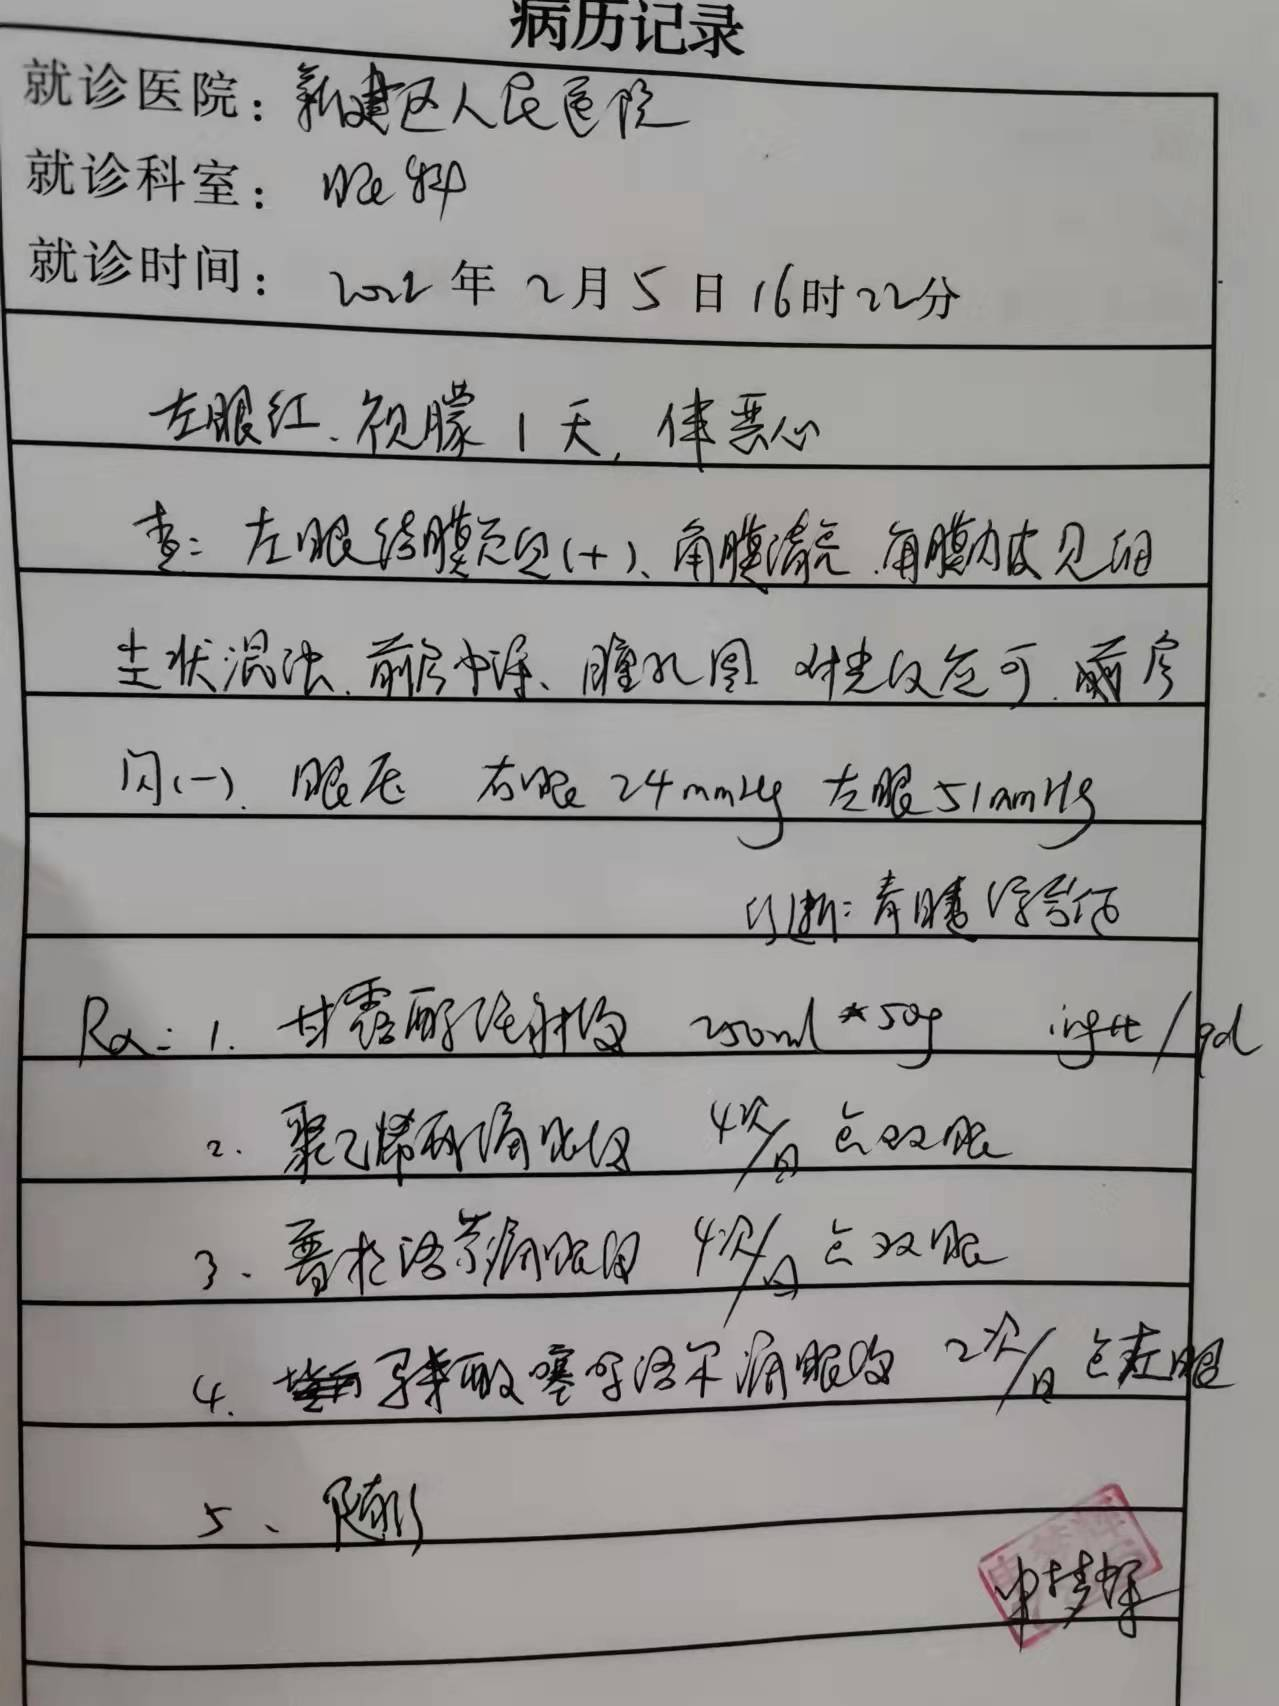 病历记录
就诊医院：新建区人民医院
就诊科室：眼科
就诊时间：2022年2月5日16时22分
左眼红、视朦1天，伴恶心
查：左眼结膜充血(+)、角膜清亮、角膜内皮见细
尘状混浊、前房中深、瞳孔圆 对光反应可、前房
闪(-)、眼压 右眼24mmHg 左眼51mmHg
诊断：青睫综合征
Rx：1. 甘露醇注射液 250ml*50g ivgtt/qd
2. 聚乙烯醇滴眼液 4次/日 点双眼
3. 普拉洛芬滴眼液 4次/日 点双眼
4. 马来酸噻吗洛尔滴眼液 2次/日 点左眼
5、随诊